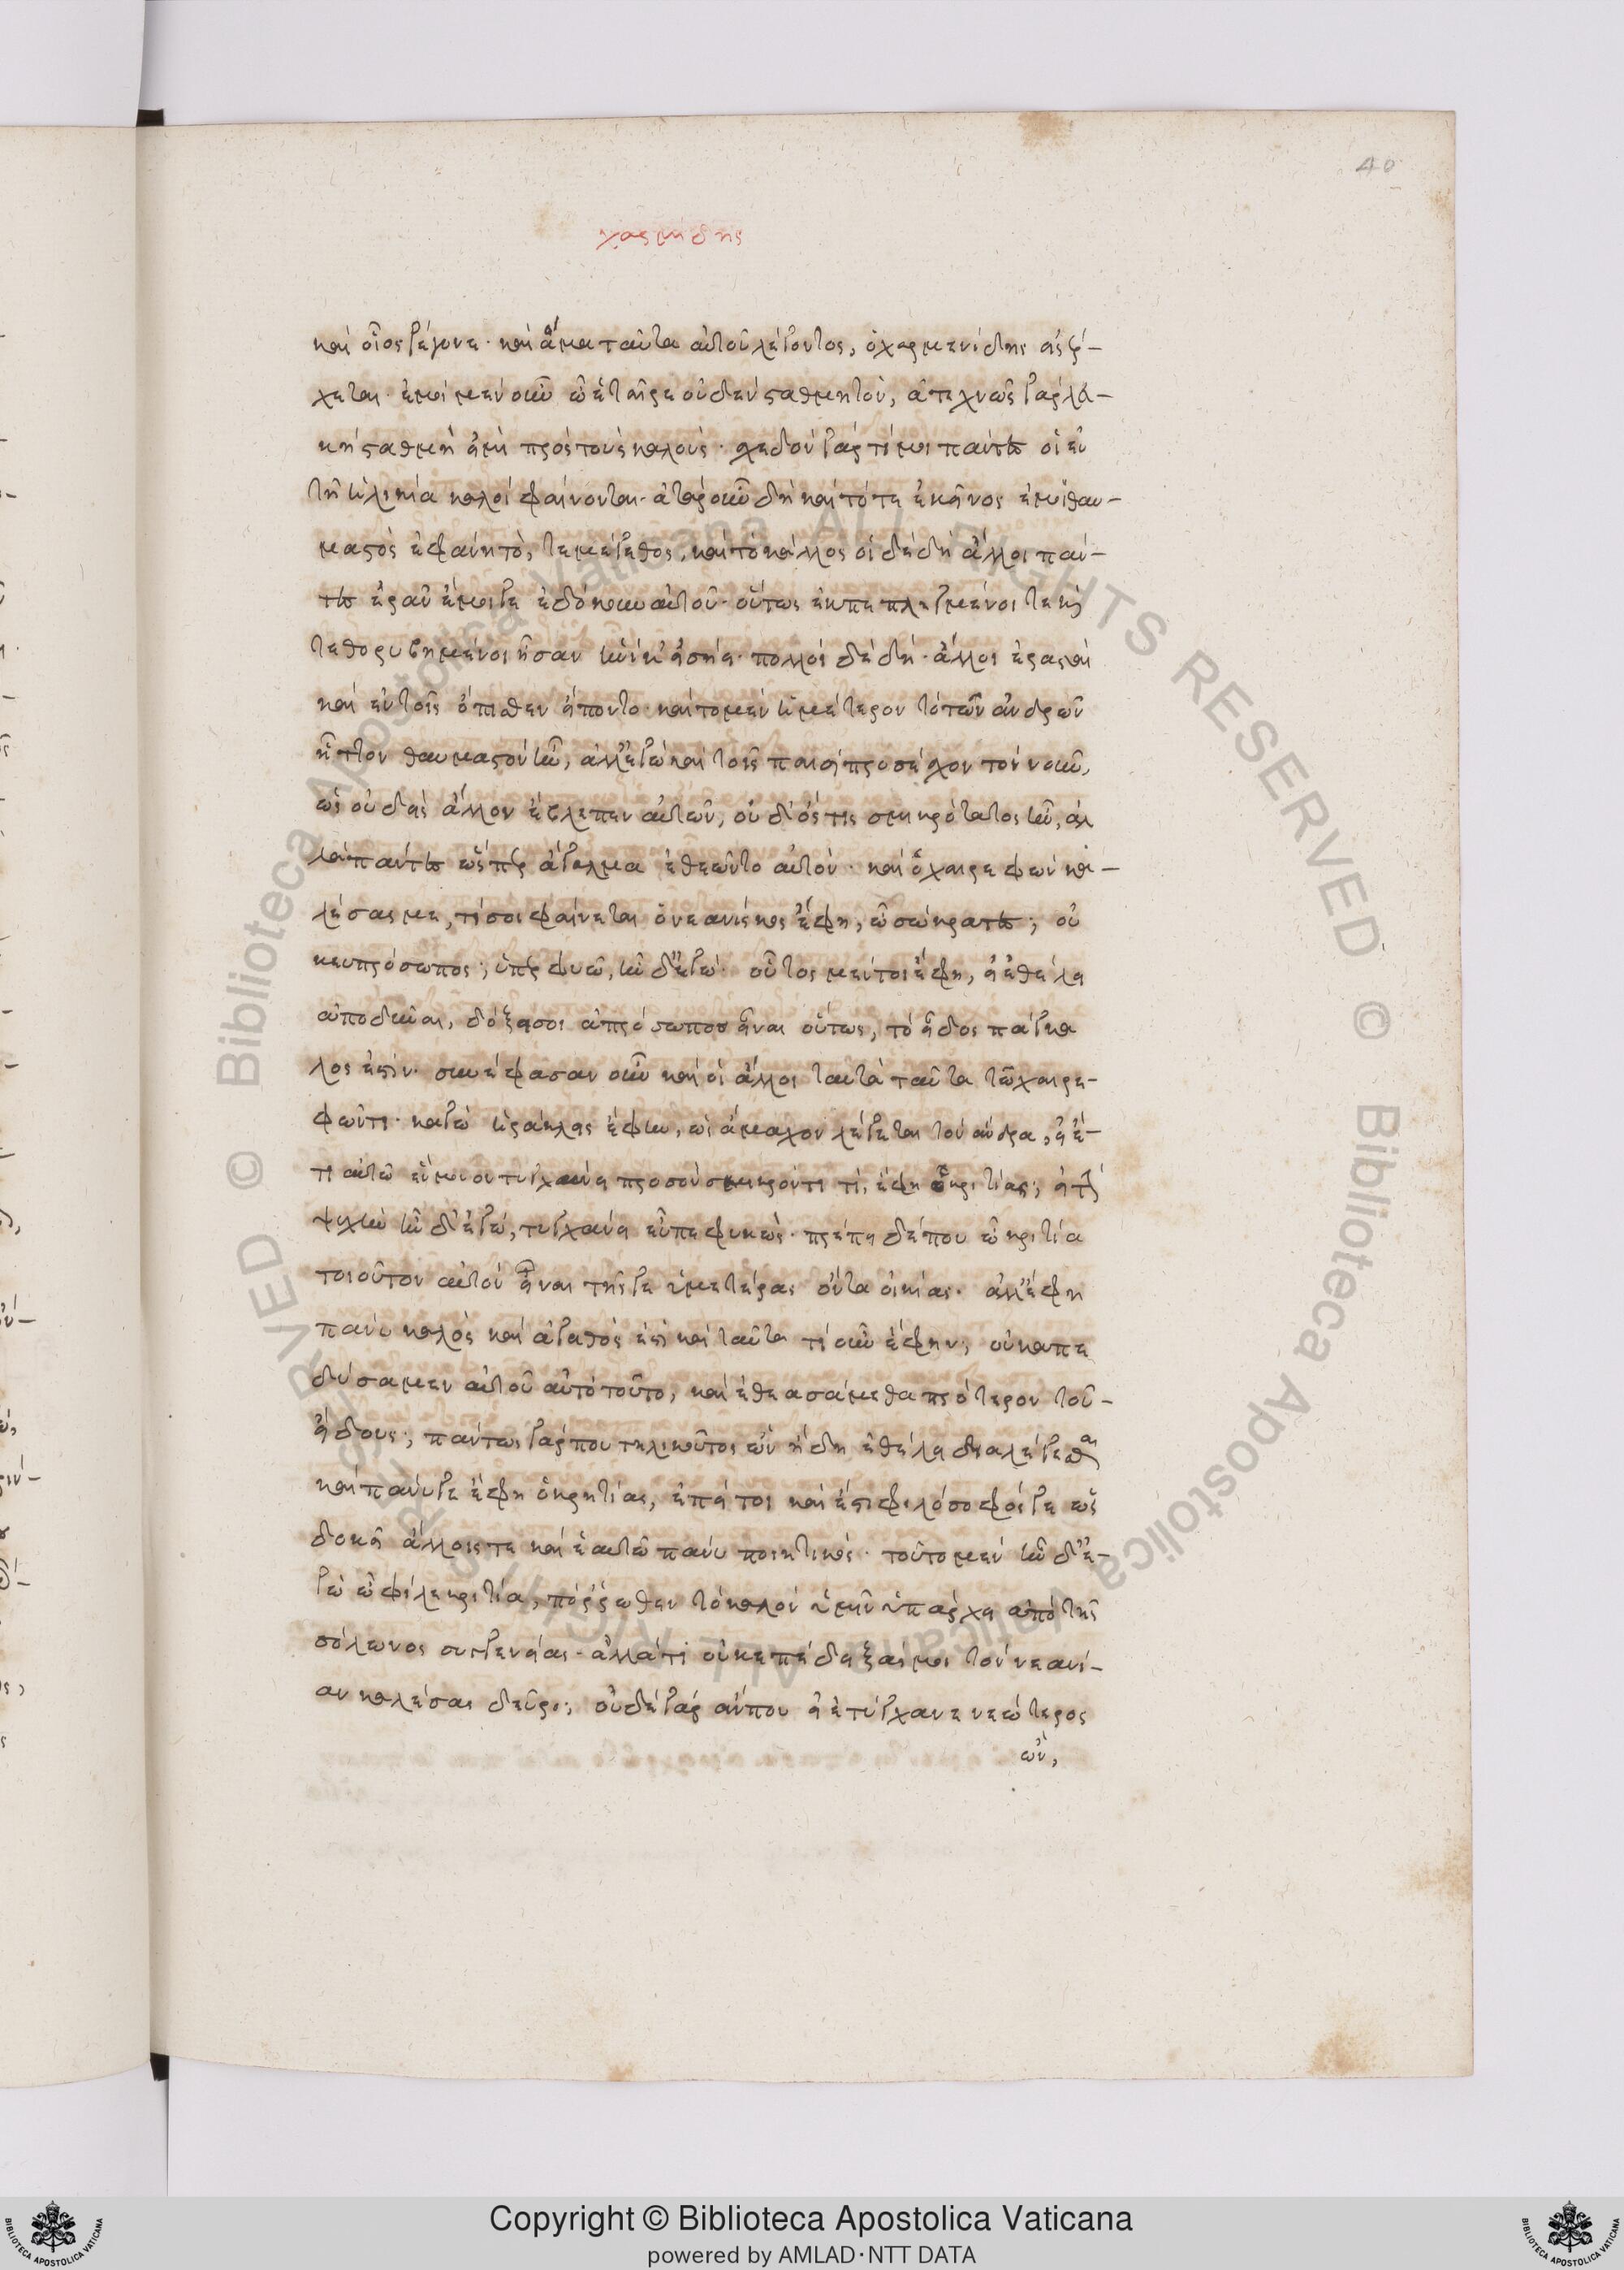 40
χαρμίδης
καὶ οἷος γέγονε· καὶ ἅμα ταῦτ᾽ αὐτοῦ λέγοντος, ὁ χαρμενίδης εἰσέρ-
χεται· ἐμοὶ μὲν οὖν ὦ ἑταῖρε οὐδὲν σταθμητὸν, ἀτεχνῶς γὰρ λευ-
κὴ στάθμη εἰμὶ πρὸς τοὺς καλοὺς· σχεδὸν γάρ τί μοι πάντες οἱ ἐν
τῇ ἡλικίᾳ καλοὶ φαίνονται· ἀτὰρ οὖν δὴ καὶ τότε ἐκεῖνος ἐμοὶ θαυ-
μαστὸς ἐφαίνετο, τε μέγεθος, καὶ τὸ κάλλος οἱ δὲ δὴ ἄλλοι πάν-
τες ἐρᾶν ἔμοιγε ἐδόκουν αὐτοῦ· οὕτως ἐκπεπληγμένοι τε καὶ
τεθορυβημένοι ἦσαν ἡνίκ᾽ εἰσῄει· πολλοὶ δὲ δὴ· ἄλλοι ἐρασταὶ
καὶ ἐν τοῖς ὄπισθεν εἵποντο· καὶ τὸ μὲν ἡμέτερον τὸ τῶν ἀνδρῶν
ἧττον θαυμαστὸν ἦν, ἀλλ᾽ ἐγὼ καὶ τοῖς παισὶ προσέσχον τὸν νοῦν,
ὡς οὐδεὶς ἄλλον ἔβλεπεν αὐτῶν, οὐδ᾽ ὅστις σμικρότατος ἦν, ἀλ
λὰ πάντες ὥσπερ ἄγαλμα ἐθεῶντο αὐτὸν· καὶ ὁ χαιρεφῶν κα-
λέσας με, τί σοι φαίνεται ὁ νεανίσκος ἔφη, ὦ σώκρατες; οὐ
κ εὐπρόσωπος; ὑπερφυῶ, ἦν δ᾽ ἐγώ· οὗτος μέντοι ἔφη, εἰ ἐθέλει
ἀποδῦναι, δόξει σοι ἀπρόσωπος εἶναι οὕτως, τὸ εἶδος πάγκα
λος ἐστίν· συνέφασαν οὖν καὶ οἱ ἄλλοι ταυτὰ ταῦτα τῶ χαιρε-
φῶντι· κἀγὼ ἡράκλεις ἔφην, ὡς ἄμαχον λέγεται τὸν ἄνδρα, εἰ ἔ-
τι αὐτῶ ἓν μόνον τυγχάνει προσὸν σμικρόν τι τί, ἔφη ὁ κριτίας; εἰ τὴν
ψυχὴν ἦν δ᾽ ἐγώ, τυγχάνει εὖ πεφυκὼς· πρέπει δέ που ὦ κριτία
τοιοῦτον αὐτὸν εἶναι τῆς γε ὑμετέρας ὄντα οἰκίας· ἀλλ᾽ ἔφη
πάνυ καλὸς καὶ ἀγαθὸς ἐστὶ καὶ ταῦτα τί οὖν ἔφην; οὐκ ἀπε
δύσαμεν αὐτοῦ αὐτὸ τοῦτο, καὶ ἐθεασάμεθα πρότερον τοῦ-
εἴδους; πάντως γάρ που τηλικοῦτος ὢν ἤδη ἐθέλει διαλέγεσθαι
καὶ πάνυ γε ἔφη ὁ κρητίας, ἐπεί τοι καὶ ἐστὶ φιλόσοφός γε ὡς
δοκεῖ ἄλλοις τε καὶ ἑαυτῶ πάνυ ποιητικός· τοῦτο μὲν ἦν δ᾽ ἐ-
γὼ ὦ φίλε κριτία, πόρρωθεν τὸ καλὸν ὑμῖν ὑπάρχει ἀπὸ τῆς
σόλωνος συγγενείας· ἀλλὰ τί οὐκ ἐπέδειξάς μοι τὸν νεανί-
αν καλέσας δεῦρο; οὐδὲ γὰρ ἄν που εἰ ἐτύγχανε νεώτερος
ὢν,
Copyright © Biblioteca Apostolica Vaticana
powered by AMLAD·NTT DATA